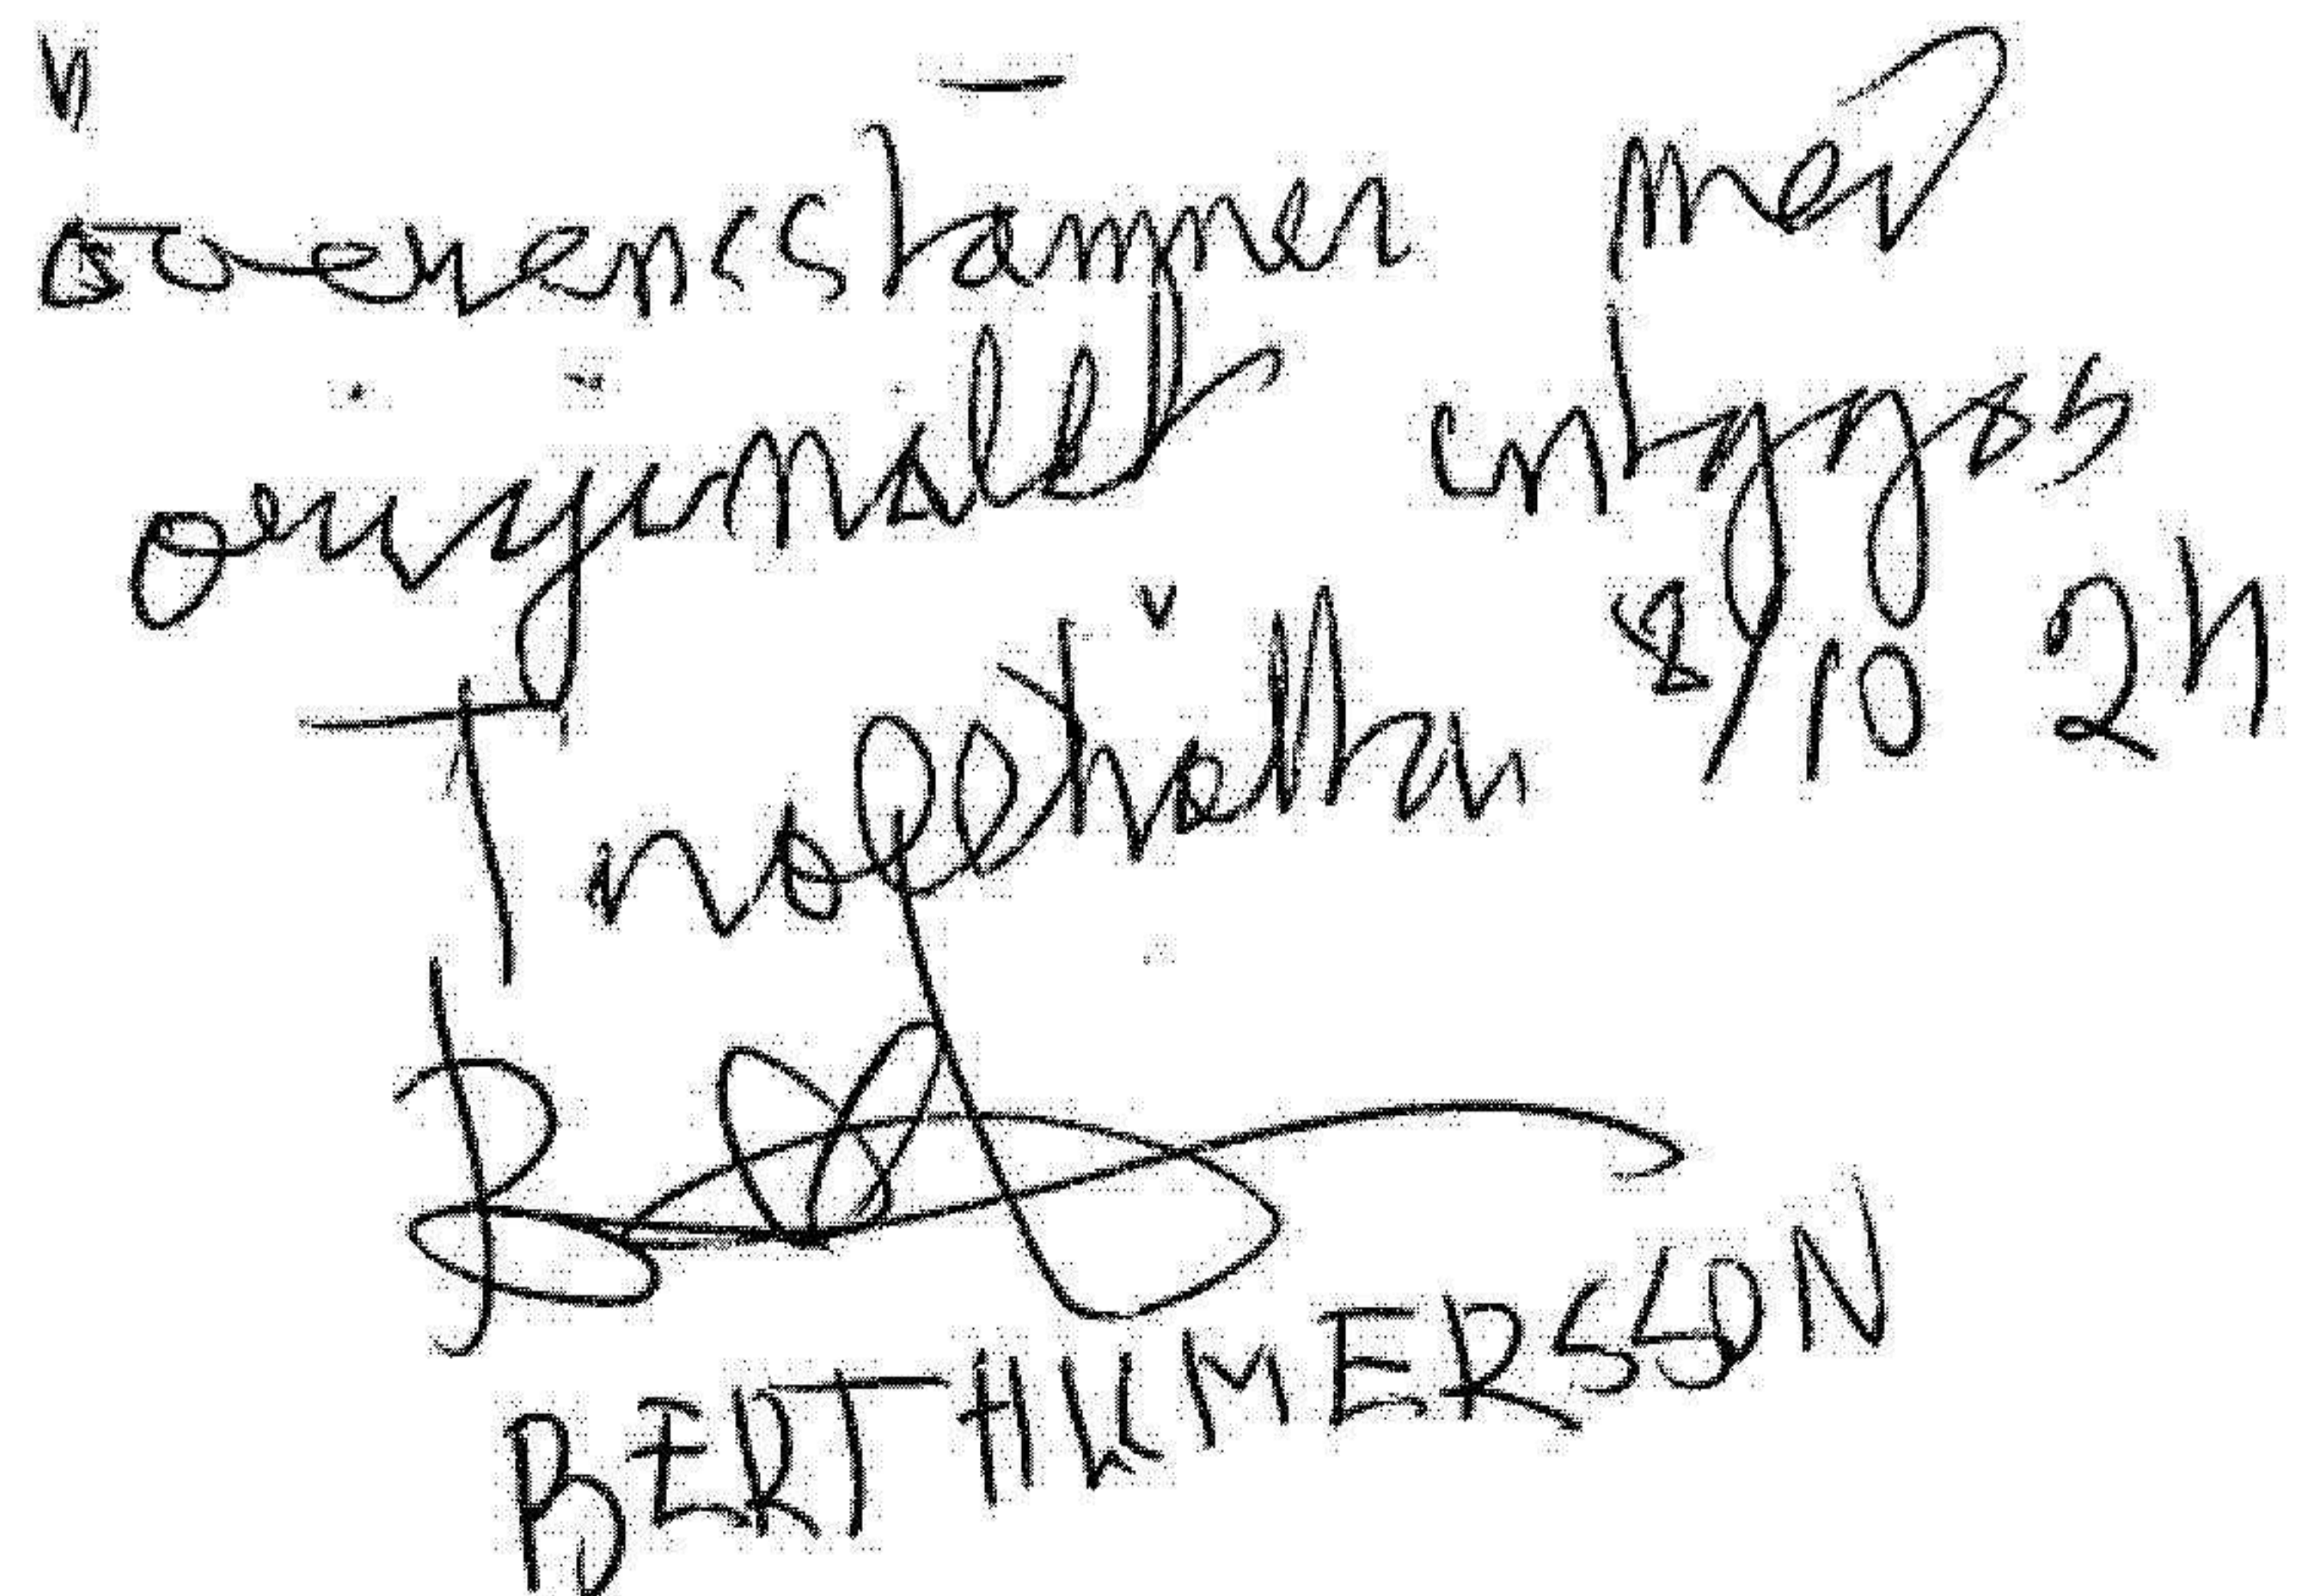 överensstämmer med
originalet intygas
Trollhättan 8/10 24
BERTH ILMERSSON